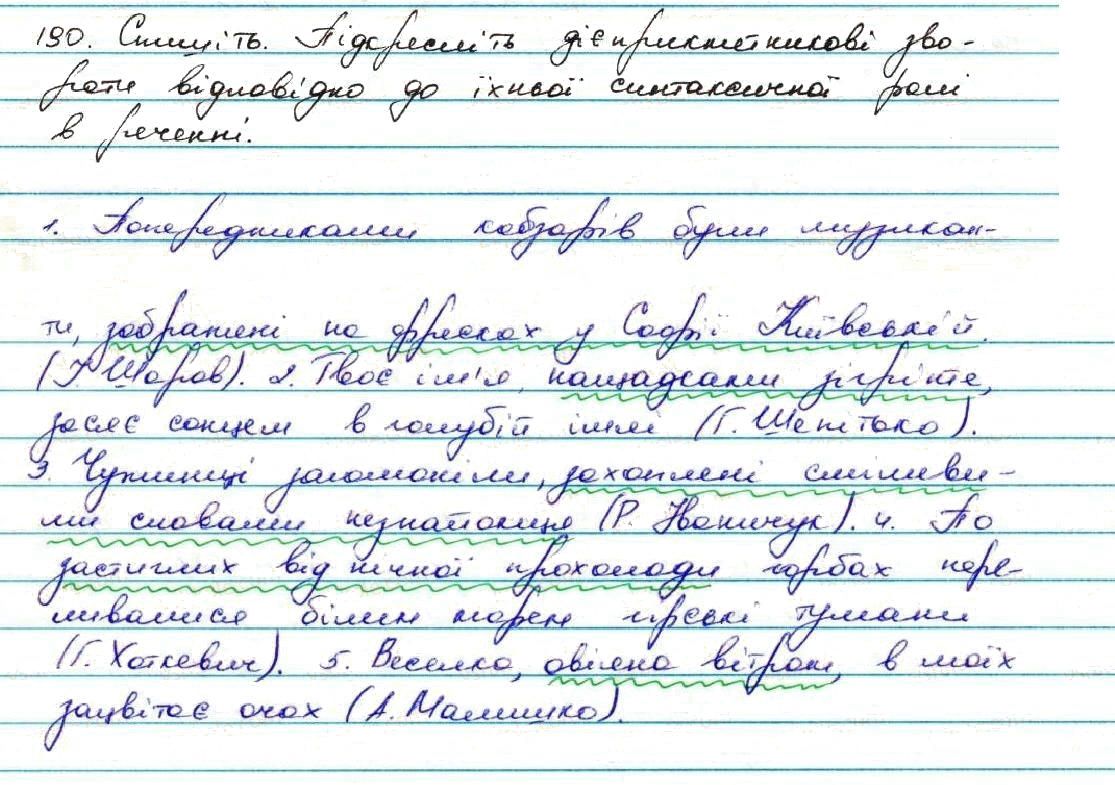 190. Спишіть. Підкресліть дієприкметникові зво-
роти відповідно до їхньої синтаксичної ролі
в реченні.
1. Попередниками кобзарів були музикан-
ти, зображені на фресках у Софії Київській.
(І. Шаров). 2. Твоє ім'я, нащадками зігріте,
засяє сонцем в голубій імлі (Г. Шепітько).
3. Чужинці загомоніли, захоплені сміливи-
ми словами незнайомця (Р. Іваничук). 4. По
застиглих від нічної прохолоди горбах пере-
ливалися білим морем гірські тумани
(Г. Хоткевич). 5. Веселка, овіяна вітром, в моїх
зацвітає очах (А. Малишко).